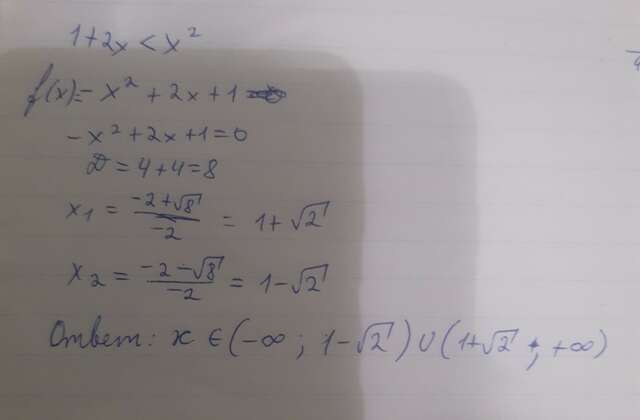 1+2x < x²
f(x)=-x²+2x+1
-x²+2x+1=0
D=4+4=8
x₁ = (-2+√8)/(-2) = 1+√2
x₂ = (-2-√8)/(-2) = 1-√2
Ответ: x ∈ (-∞ ; 1-√2) ∪ (1+√2 ; +∞)